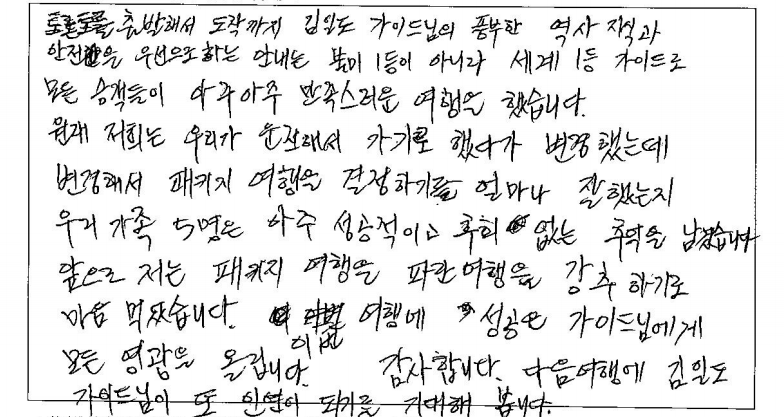 토론토를 출발해서 도착까지 김일도 가이드님의 풍부한 역사 지식과
안전을 우선으로 하는 안내는 북미 1등이 아니라 세계 1등 가이드로
모든 승객들이 아주아주 만족스러운 여행을 했습니다.
원래 저희는 우리가 운전해서 가기로 했다가 변경했는데
변경해서 패키지 여행을 결정하기를 얼마나 잘했는지
우리 가족 5명은 아주 성공적이고 후회 없는 추억을 남겼습니다
앞으로 저는 패키지 여행을 파란여행을 강추하기로
마음 먹었습니다. 이번 여행에 성공은 가이드님에게
모든 영광을 올립니다. 감사합니다. 다음여행에 김일도
가이드님이 또 인연이 되기를 기대해 봅니다.